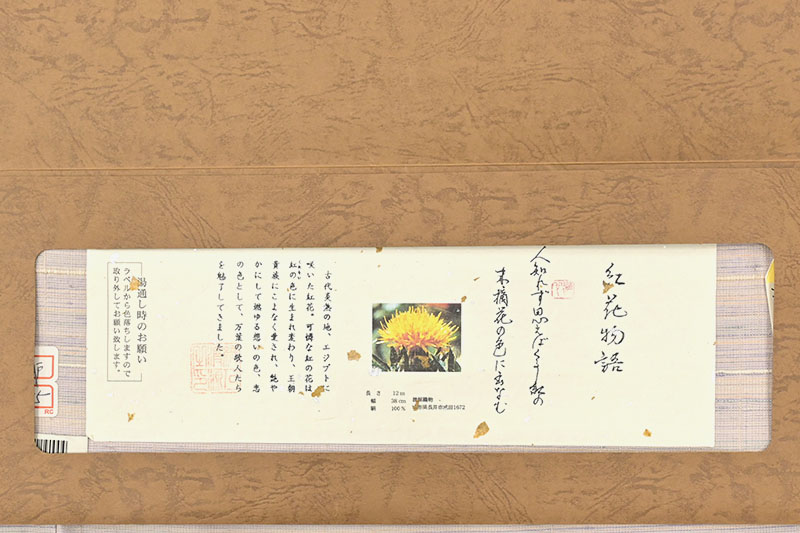 紅花物語
人知れず思へばくるし紅の
末摘花の色に出なむ
長さ 12m
幅 38cm
絹 100%
古代炎熱の地、エジプトに
咲いた紅花。可憐な紅の花は
紅の色に生まれ変わり、王朝
貴族にこよなく愛され、艶や
かにして燃ゆる想いの色、恋
の色として、万葉の歌人たち
を魅了してきました。
湯通し時のお願い
ラベルから色落ちしますので
取り外してお願い致します。
RC